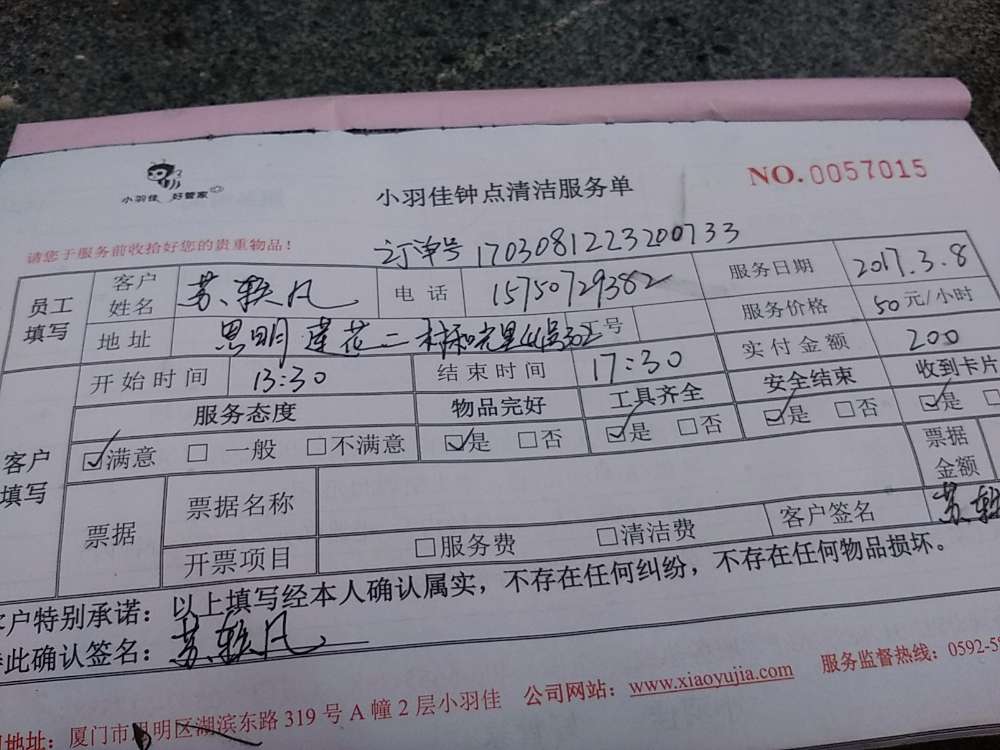 小羽佳 好管家
小羽佳钟点清洁服务单
NO.0057015
请您于服务前收拾好您的贵重物品!
订单号 1703081223200733
员工填写 客户姓名 苏轶凡 电话 15750729382 服务日期 2017.3.8
地址 思明 莲花二村 工号 服务价格 50元/小时
开始时间 13:30 结束时间 17:30 实付金额 200
服务态度 物品完好 工具齐全 安全结束 收到卡片
客户填写 ☑满意 □一般 □不满意 ☑是 □否 ☑是 □否 ☑是 □否 ☑是 □
票据 票据名称 票据金额
开票项目 □服务费 □清洁费 客户签名 苏轶
客户特别承诺:以上填写经本人确认属实,不存在任何纠纷,不存在任何物品损坏。
特此确认签名:苏轶凡
地址:厦门市思明区湖滨东路319号A幢2层小羽佳 公司网站:www.xiaoyujia.com 服务监督热线:0592-5